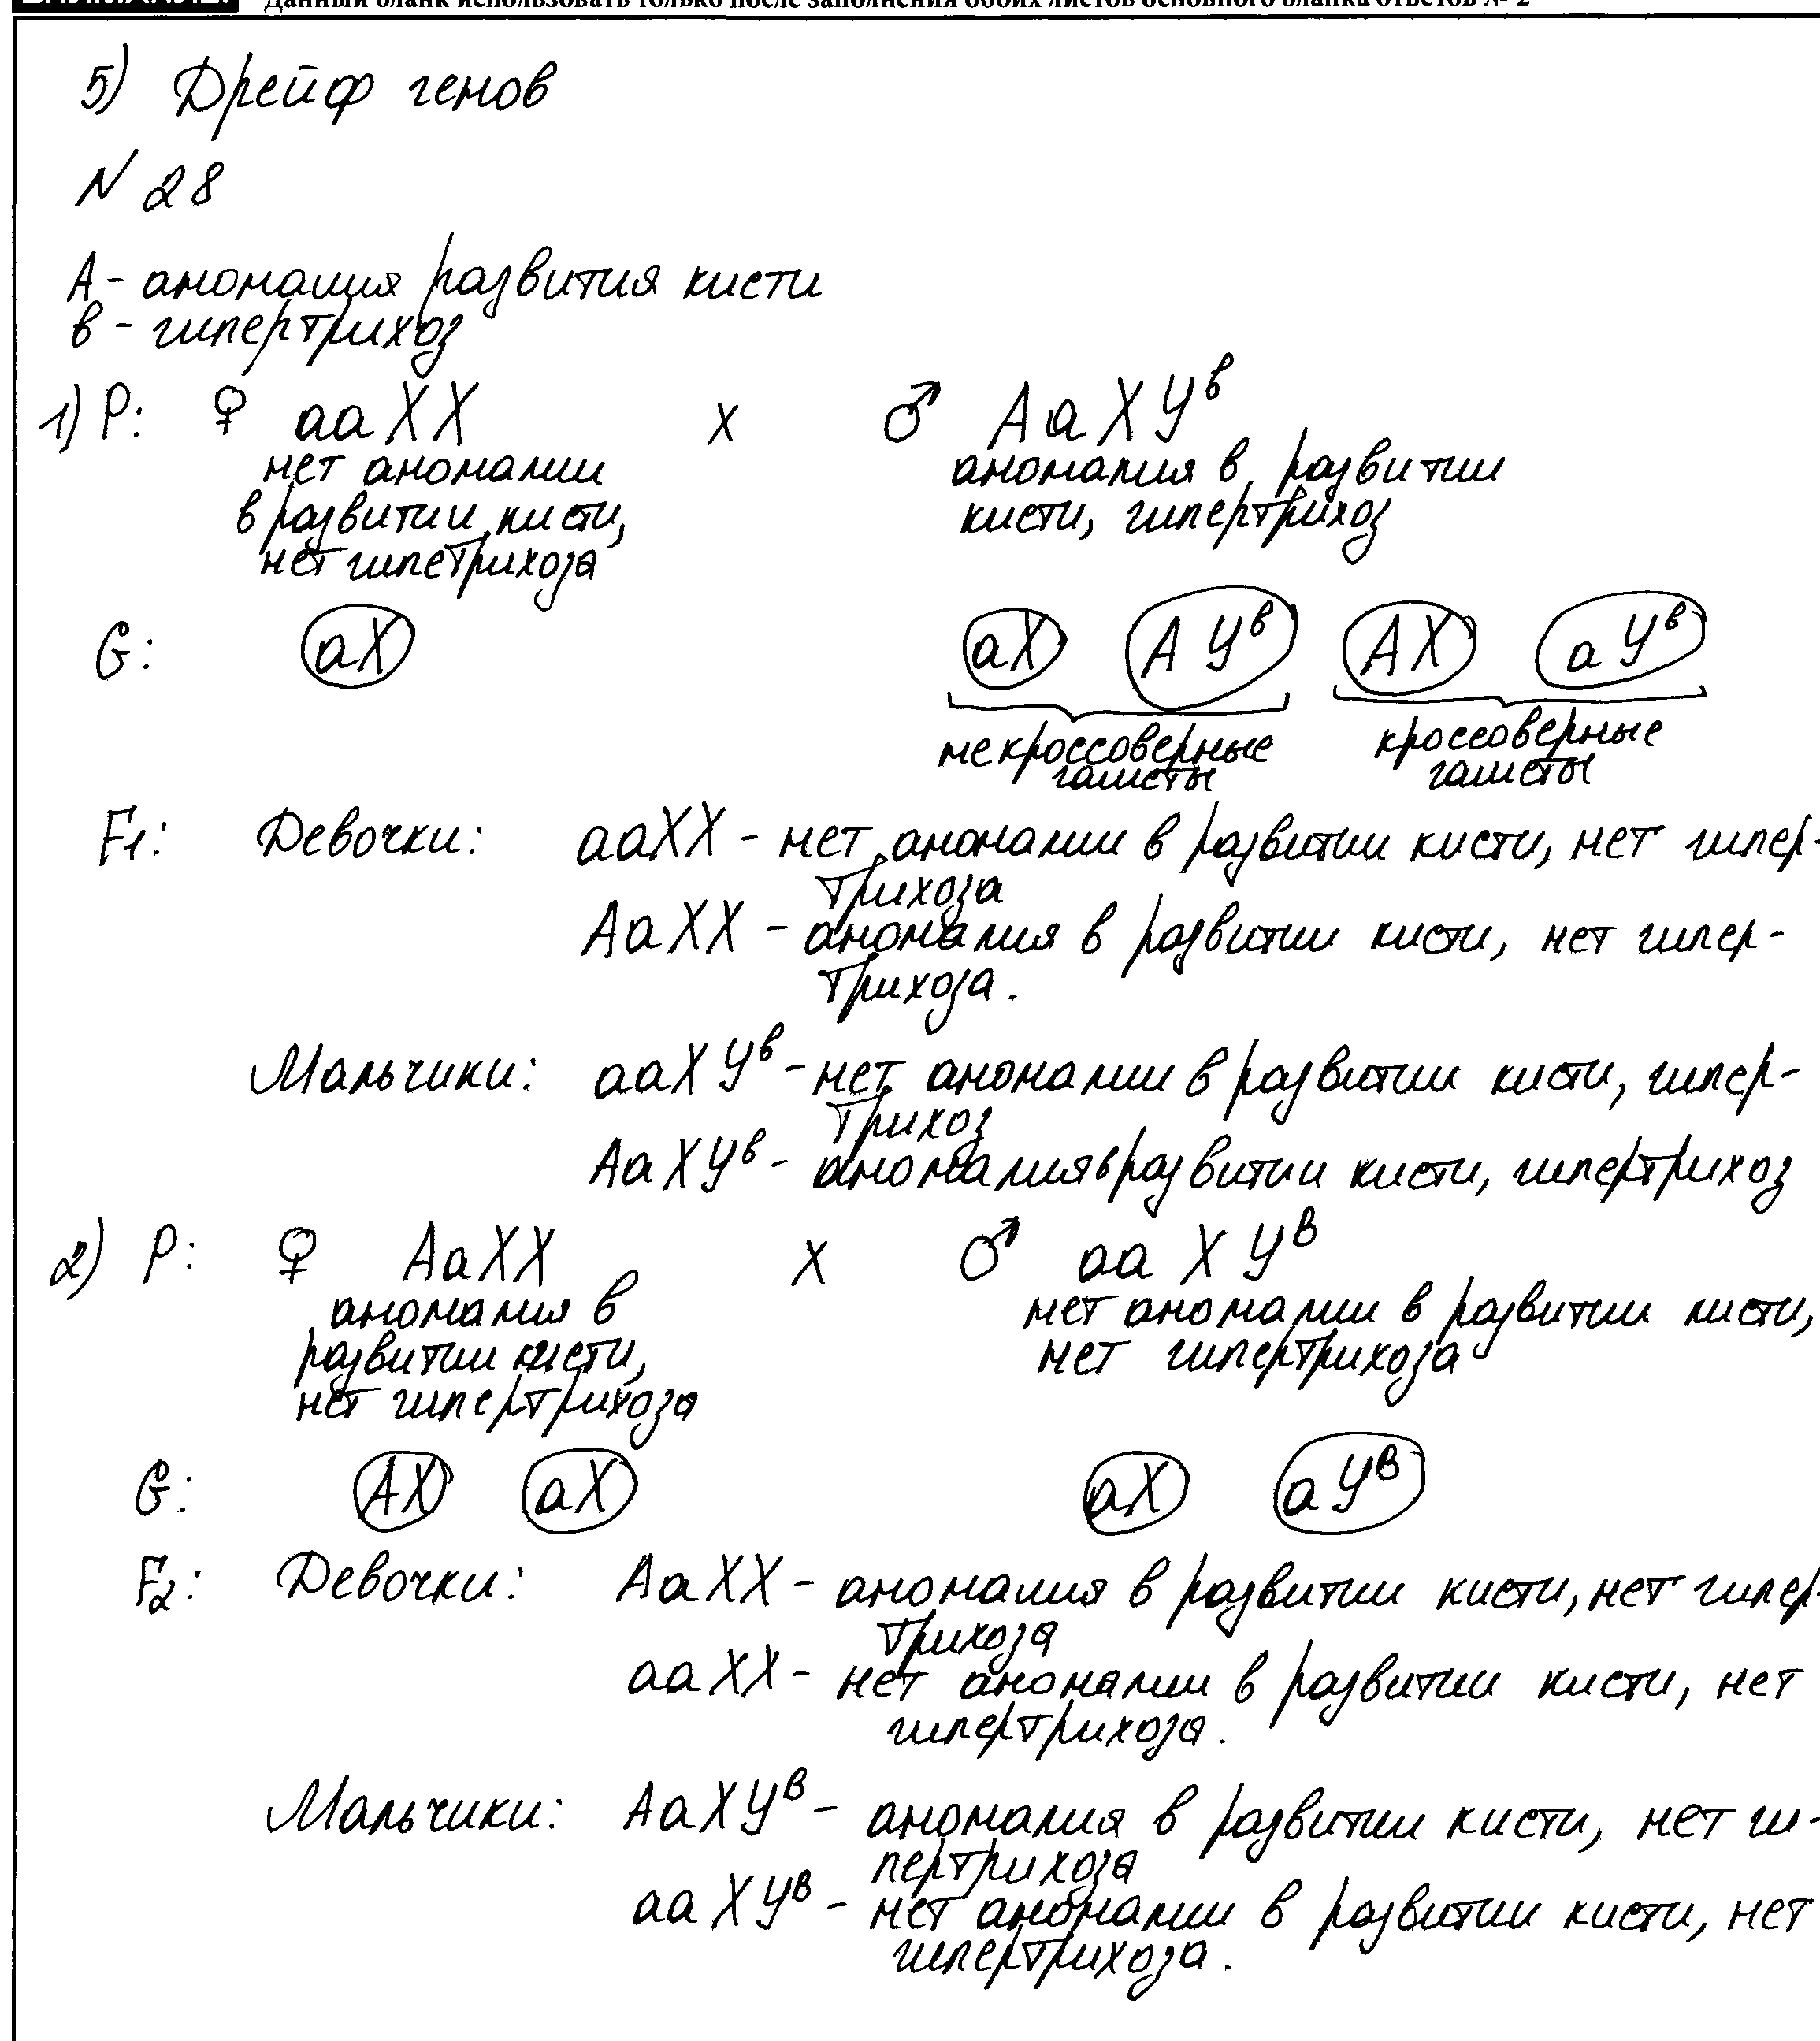 Данный бланк использовать только после заполнения обоих листов основного бланка ответов № 2
5) Дрейф генов
N 28
A - аномалия развития кисти
в - гипертрихоз
1) P: ♀ aaXX x ♂ AaXYᵇ
нет аномалии аномалия в развитии
в развитии кисти, кисти, гипертрихоз
нет гипетрихоза
G: aX aX AYᵇ AX aYᵇ
некроссоверные кроссоверные
гаметы гаметы
F1: Девочки: aaXX - нет аномалии в развитии кисти, нет гипер-
трихоза
AaXX - аномалия в развитии кисти, нет гипер-
трихоза.
Мальчики: aaXYᵇ - нет аномалии в развитии кисти, гипер-
трихоз
AaXYᵇ - аномалия в развитии кисти, гипертрихоз
2) P: ♀ AaXX x ♂ aaXYᴮ
аномалия в нет аномалии в развитии кисти,
развитии кисти, нет гипертрихоза
нет гипертрихоза
G: AX aX aX aYᴮ
F2: Девочки: AaXX - аномалия в развитии кисти, нет гипер-
трихоза
aaXX - нет аномалии в развитии кисти, нет
гипертрихоза.
Мальчики: AaXYᴮ - аномалия в развитии кисти, нет ги-
пертрихоза
aaXYᴮ - нет аномалии в развитии кисти, нет
гипертрихоза.